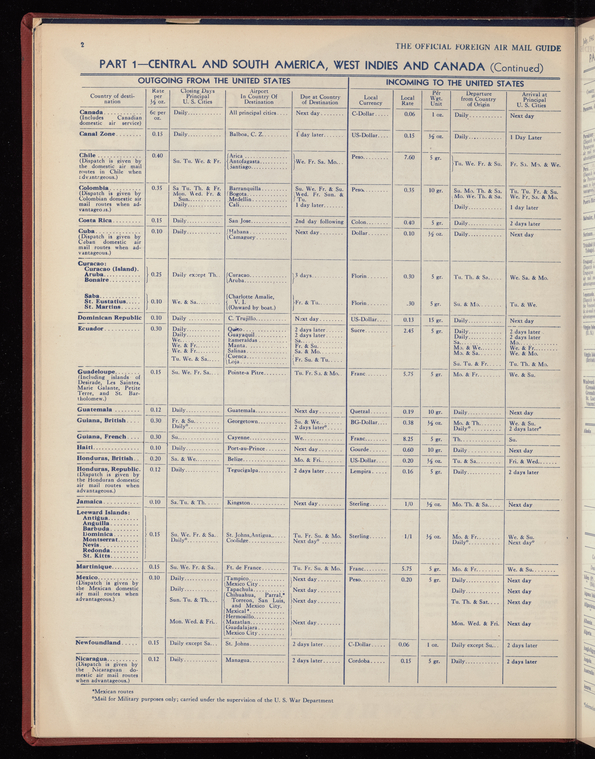 2 THE OFFICIAL FOREIGN AIR MAIL GUIDE
PART 1—CENTRAL AND SOUTH AMERICA, WEST INDIES AND CANADA (Continued)
OUTGOING FROM THE UNITED STATES INCOMING TO THE UNITED STATES
Country of destination Rate per ½ oz. Closing Days Principal U. S. Cities Airport In Country Of Destination Due at Country of Destination Local Currency Local Rate Per Wgt. Unit Departure from Country of Origin Arrival at Principal U. S. Cities
Canada 6c per oz. Daily All principal cities Next day C-Dollar 0.06 1 oz. Daily Next day
(Includes Canadian
domestic air service)
Canal Zone 0.15 Daily Balboa, C. Z. 1 day later US-Dollar 0.15 ½ oz. Daily 1 Day Later
Chile 0.40 Su. Tu. We. & Fr. Arica Antofagasta Santiago We. Fr. Sa. Mo. Peso 7.60 5 gr. Tu. We. Fr. & Su. Fr. Sa. Mo. & We.
(Dispatch is given by
the domestic air mail
routes in Chile when
advantageous.)
Colombia 0.35 Sa Tu. Th. & Fr. Barranquilla Su. We. Fr. & Sa. Peso 0.35 10 gr. Su. Mo. Th. & Sa. Tu. Tu. Fr. & Su.
(Dispatch is given by Mon. Wed. Fr. & Bogota Wed. Fr. Sun. & Mo. We. Th. & Sa. We. Fr. Sa. & Mo.
Colombian domestic air Sun. Medellin Tu.
mail routes when ad- Daily Cali 1 day later Daily 1 day later
vantageous.)
Costa Rica 0.15 Daily San Jose 2nd day following Colon 0.40 5 gr. Daily 2 days later
Cuba 0.10 Daily Habana Next day Dollar 0.10 ½ oz. Daily Next day
(Dispatch is given by Camaguey
Cuban domestic air
mail routes when ad-
vantageous.)
Curacao:
Curacao (Island).
Aruba 0.25 Daily except Th. Curacao 3 days Florin 0.30 5 gr. Tu. Th. & Sa. We. Sa. & Mo.
Bonaire Aruba
Saba Charlotte Amalie,
St. Eustatius 0.10 We. & Sa. V. I. Fr. & Tu. Florin .10 5 gr. Su. & Mo. Tu. & We.
St. Martins (Onward by boat.)
Dominican Republic 0.10 Daily C. Trujillo Next day US-Dollar 0.13 15 gr. Daily Next day
Ecuador 0.30 Daily Quito 2 days later Sucre 2.45 5 gr. Daily 2 days later
Daily Guayaquil 2 days later Daily 2 days later
We. Esmeraldas Sa. Sa. Mo.
We. & Fr. Manta Fr. & Su. Mo. & We. We. & Fr.
We. & Fr. Salinas Sa. & Mo. Mo. & Sa. We. & Mo.
Tu. We. & Sa. Cuenca Loja Fr. Su. & Tu. Su. Tu. & Fr. Tu. Th. & Mo.
Guadeloupe 0.15 Su. We. Fr. Sa. Pointe-a Pitre Tu. Fr. Sa. & Mo. Franc 5.75 5 gr. Mo. & Fr. We. & Su.
(Including islands of
Desirade, Les Saintes,
Marie Galante, Petite
Terre, and St. Bar-
tholomew.)
Guatemala 0.12 Daily Guatemala Next day Quetzal 0.19 10 gr. Daily Next day
Guiana, British 0.30 Fr. & Su. Georgetown Su. & We. BG-Dollar 0.38 ½ oz. Mo. & Th. We. & Su.
Daily* 2 days later* Daily* 2 days later*
Guiana, French 0.30 Su. Cayenne We. Franc 8.25 5 gr. Th. Su.
Haiti 0.10 Daily Port-au-Prince Next day Gourde 0.60 10 gr. Daily Next day
Honduras, British 0.20 Su. & We. Belize Mo. & Fri. US-Dollar 0.20 ½ oz. Tu. & Sa. Fri. & Wed.
Honduras, Republic 0.12 Daily Tegucigalpa 2 days later Lempira 0.16 5 gr. Daily 2 days later
(Dispatch is given by
the Honduran domestic
air mail routes when
advantageous.)
Jamaica 0.10 Sa. Tu. & Th. Kingston Next day Sterling 1/0 ½ oz. Mo. Th. & Sa. Next day
Leeward Islands:
Antigua
Anguilla
Barbuda
Dominica 0.15 Su. We. Fr. & Sa. St. Johns, Antigua Tu. Fr. Su. & Mo. Sterling 1/1 ½ oz. Mo. & Fr. We. & Su.
Montserrat Daily* Coolidge Next day* Daily* Next day*
Nevis
Redonda
St. Kitts
Martinique 0.15 Su. We. Fr. & Sa. Ft. de France Tu. Fr. Su. & Mo. Franc 5.75 5 gr. Mo. & Fr. We. & Su.
Mexico 0.10 Daily Tampico Next day Peso 0.20 5 gr. Daily Next day
(Dispatch is given by Mexico City
the Mexican domestic Daily Tapachula Next day Daily Next day
air mail routes when Chihuahua, Parral,*
advantageous.) Sun. Tu. & Th. Torreon, San Luis, Next day Tu. Th. & Sat. Next day
and Mexico City.
Mexical*
Hermosillo
Mon. Wed. & Fri. Mazatlan Next day Mon. Wed. & Fri. Next day
Guadalajara
Mexico City
Newfoundland 0.15 Daily except Sa. St. Johns 2 days later C-Dollar 0.06 1 oz. Daily except Su. 2 days later
Nicaragua 0.12 Daily Managua 2 days later Cordoba 0.15 5 gr. Daily 2 days later
(Dispatch is given by
the Nicaraguan do-
mestic air mail routes
when advantageous.)
*Mexican routes
*Mail for Military purposes only; carried under the supervision of the U. S. War Department